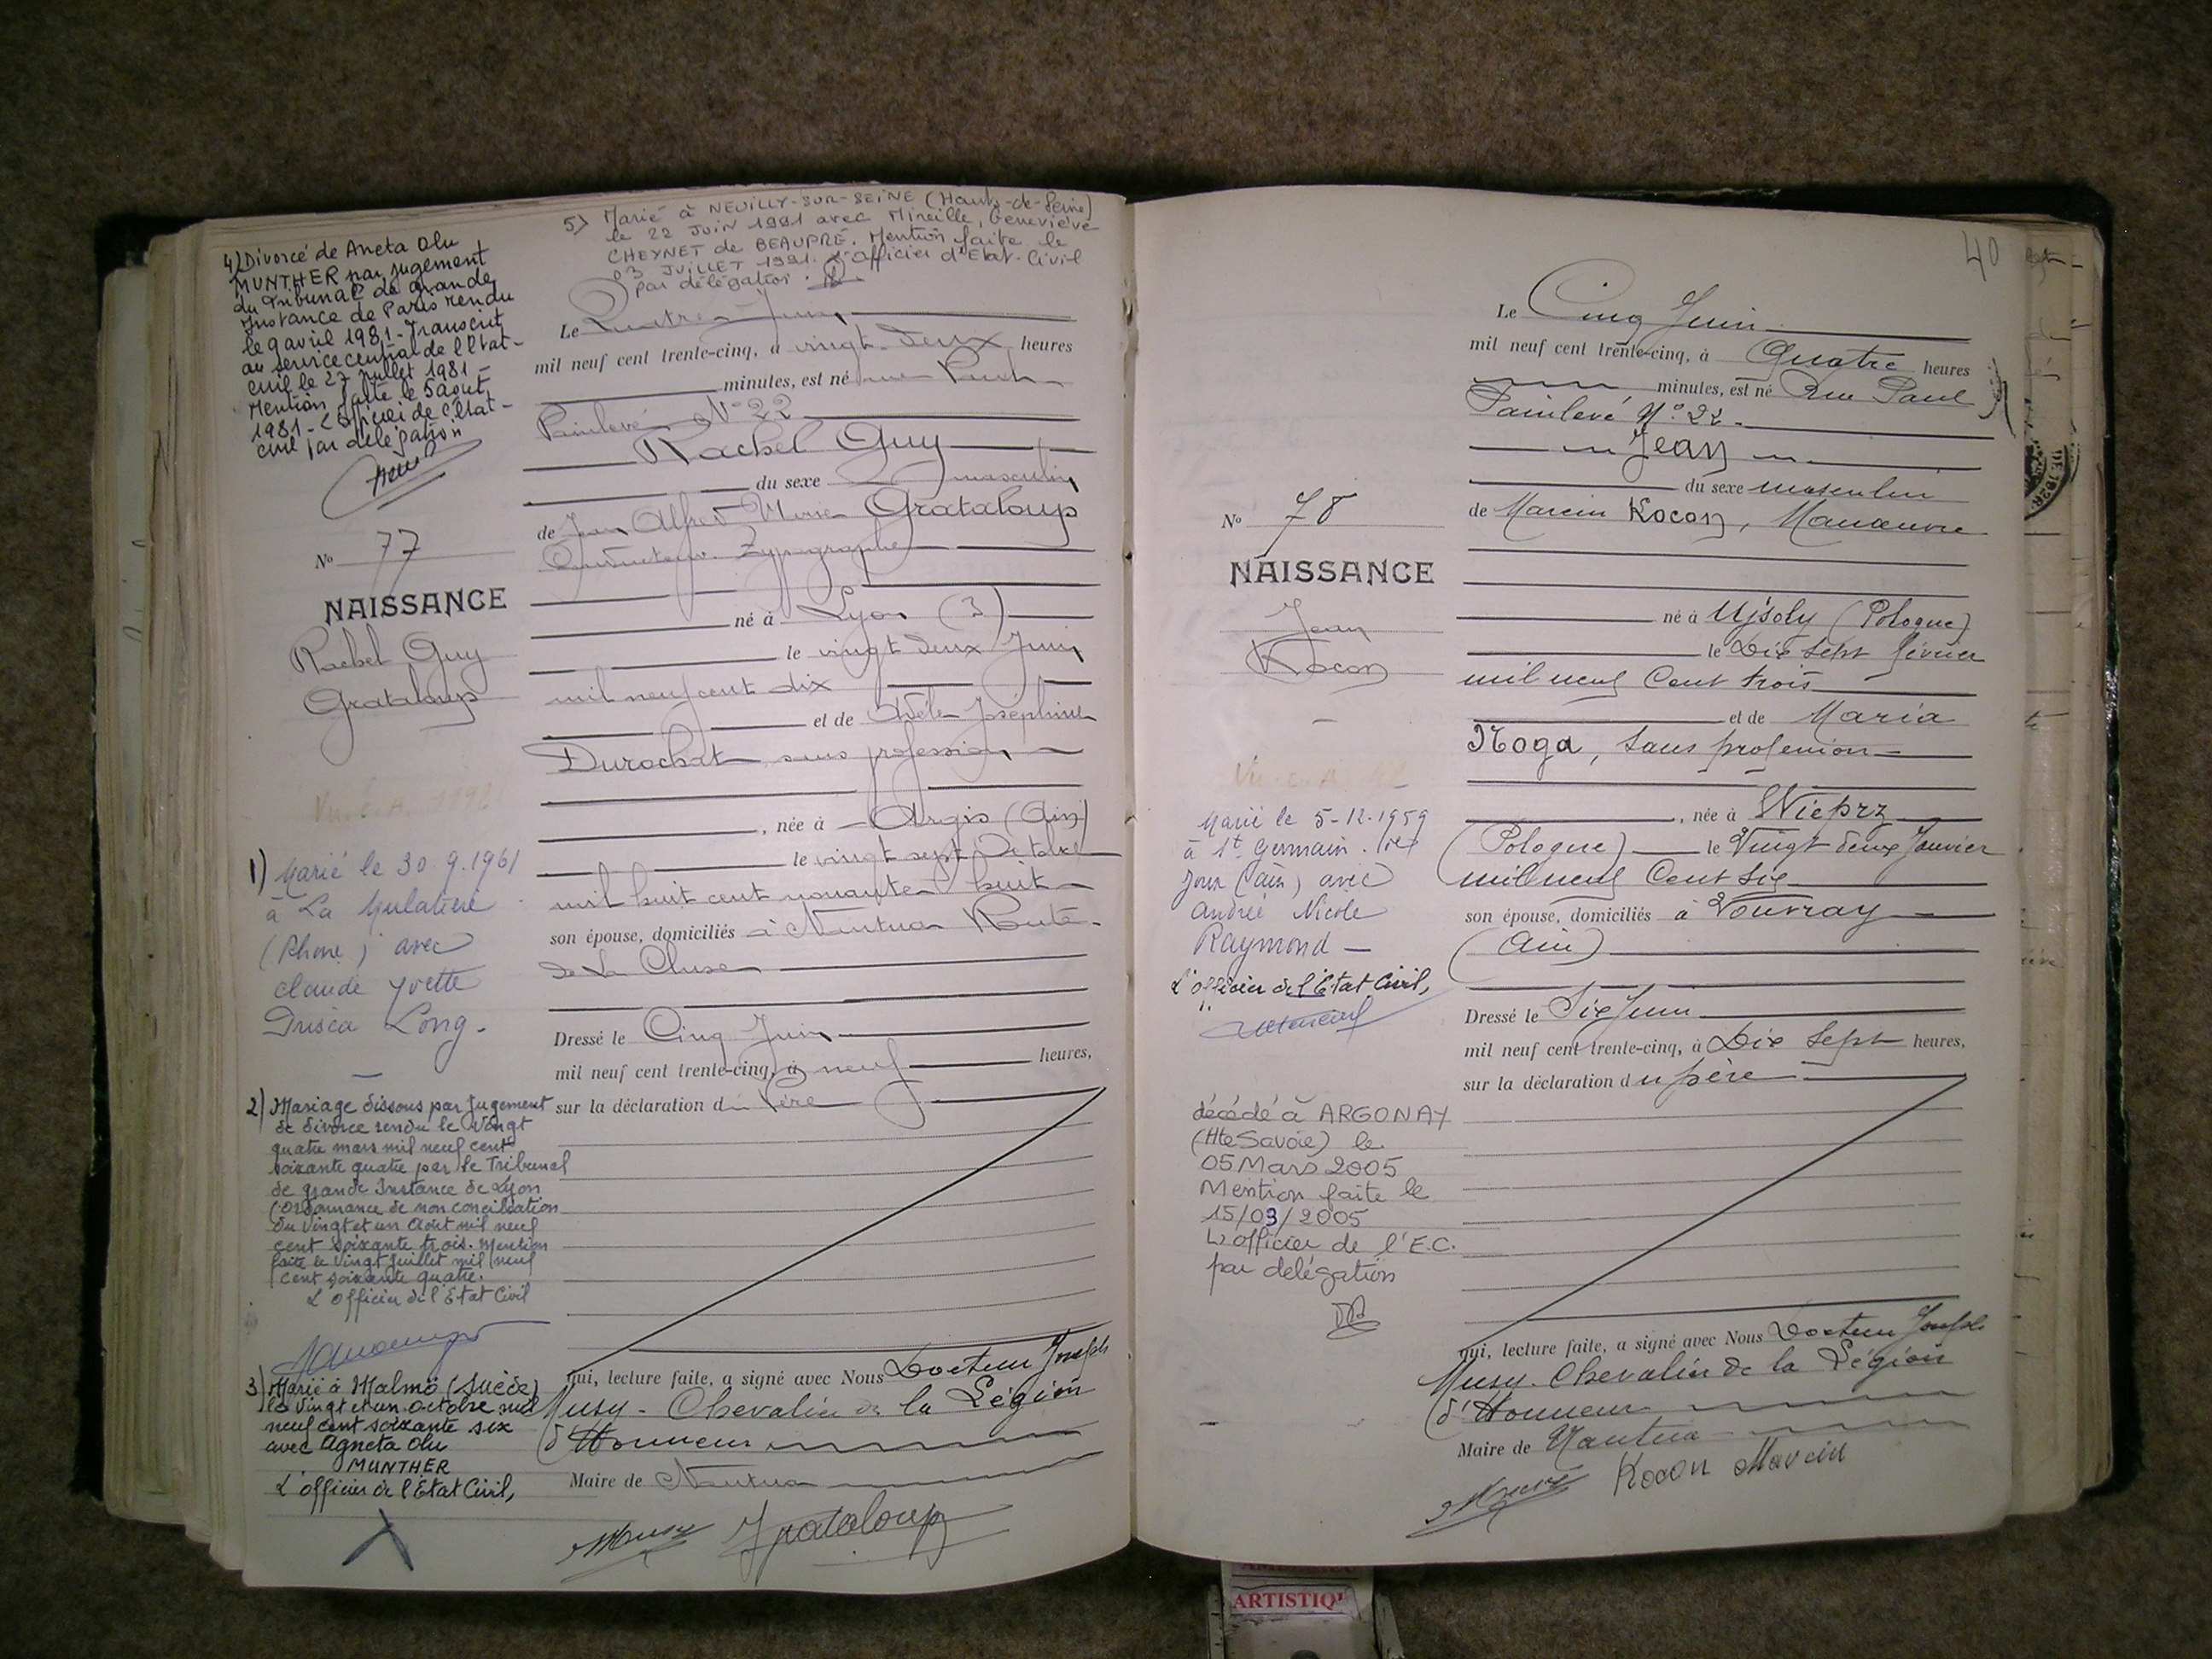 4) Divorcé de Aneta Olu
MUNTHER par jugement
du Tribunal de Grande
Instance de Paris rendu
le 9 avril 1981 - Transcrit
au service central de l'Etat-
civil le 27 juillet 1981 -
Mention faite le 5 aout
1981 - L'Officier de l'Etat-
civil par délégation
5) Marié à NEUILLY-SUR-SEINE (Hauts-de-Seine)
le 22 JUIN 1991 avec Mireille, Geneviève
CHEYNET de BEAUPRÉ. Mention faite le
03 JUILLET 1991. L'Officier d'Etat-Civil
par délégation.
N° 77
NAISSANCE
Rachel Guy
Grataloup
1) Marié le 30.9.1961
à La Mulatière
(Rhône) avec
Claude Yvette
Long -
2) Mariage dissous par Jugement
de divorce rendu le Vingt
quatre mars mil neuf cent
soixante quatre par le Tribunal
de grande Instance de Lyon
(ordonnance de non conciliation
du Vingt et un Aout mil neuf
cent soixante trois. Mention
faite le Vingt Juillet mil neuf
cent soixante quatre.
L'Officier de l'Etat Civil
3) Marié à Malmö (Suède)
le vingt et un octobre mil
neuf cent soixante six
avec Agneta Olu
MUNTHER
L'officier de l'Etat Civil,
Le Quatre Juin
mil neuf cent trente-cinq, à vingt-deux heures
minutes, est né rue Paul
Painlevé N° 22
Rachel Guy
du sexe masculin
de Jean Alfred Marie Grataloup
Conducteur Typographe
né à Lyon (3)
le vingt deux Juin
mil neuf cent dix
et de Adèle Joséphine
Durochat sans profession
, née à Argis (Ain)
le vingt sept Octobre
mil huit cent nonante huit
son épouse, domiciliés à Nantua Route
de La Cluse
Dressé le Cinq Juin
mil neuf cent trente-cinq, à neuf heures,
sur la déclaration du Père
qui, lecture faite, a signé avec Nous Docteur Joseph
Musy - Chevalier de la Légion
d'Honneur
Maire de Nantua
Musy Grataloup
40
N° 78
NAISSANCE
Jean
Kocon
Marié le 5-12-1959
à St Germain de
Joux (Ain) avec
Andrée Nicole
Raymond -
L'officier de l'Etat Civil,
décédé à ARGONAY
(Hte Savoie) le
05 Mars 2005
Mention faite le
15/03/2005
L'officier de l'E.C.
par délégation
Le Cinq Juin
mil neuf cent trente-cinq, à Quatre heures
minutes, est né Rue Paul
Painlevé N° 22 -
Jean
du sexe masculin
de Marcin Kocon, Manœuvre
né à Ujsoly (Pologne)
le Dix sept février
mil neuf Cent trois
et de Maria
Noga, sans profession
, née à Wieprz
(Pologne) le Vingt deux Janvier
mil neuf Cent six
son épouse, domiciliés à Vouvray
(Ain)
Dressé le Six Juin
mil neuf cent trente-cinq, à Dix Sept heures,
sur la déclaration du père
qui, lecture faite, a signé avec Nous Docteur Joseph
Musy - Chevalier de la Légion
d'Honneur
Maire de Nantua
Kocon Marcin
ARTISTIQ